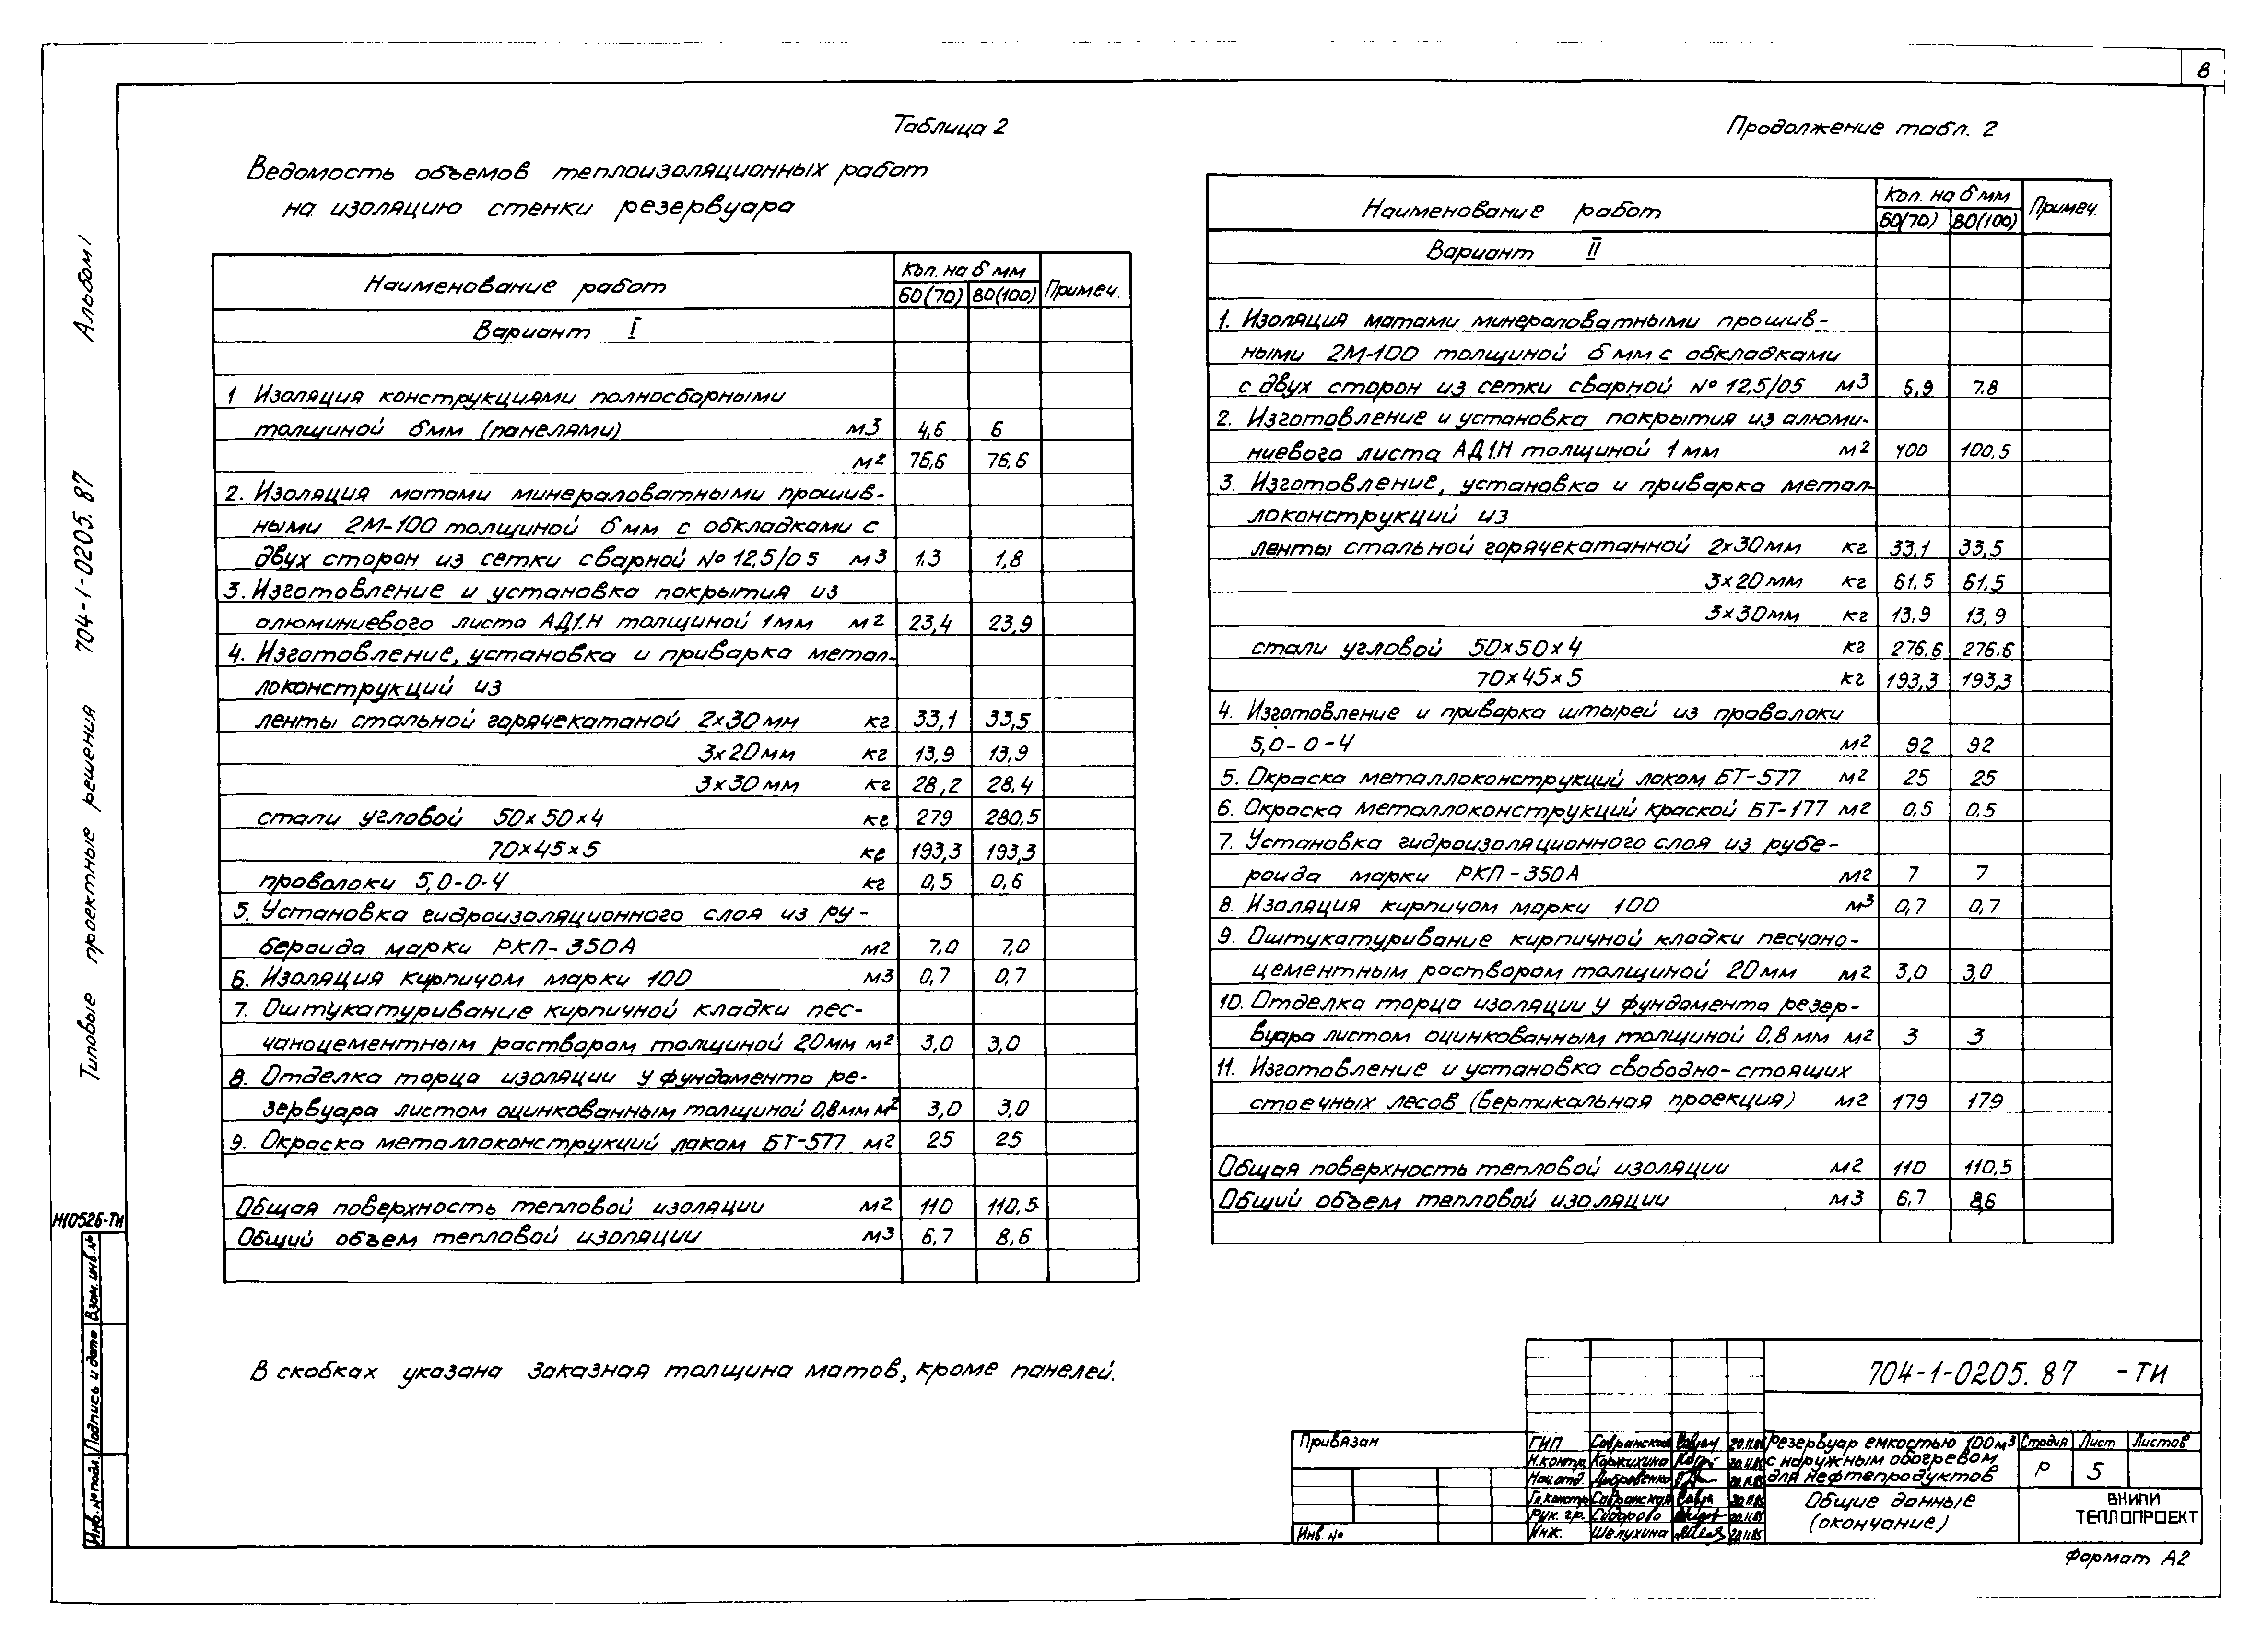 8
Альбом I
Типовые проектные решения 704-1-0205.87
Таблица 2
Ведомость объемов теплоизоляционных работ
на изоляцию стенки резервуара
Наименование работ Кол. на δ мм Примеч.
60(70) 80(100)
Вариант I
1 Изоляция конструкциями полносборными
толщиной δмм (панелями) м3 4,6 6
м2 76,6 76,6
2. Изоляция матами минераловатными прошив-
ными 2М-100 толщиной δ мм с обкладками с
двух сторон из сетки сварной № 12,5/05 м3 1.3 1,8
3. Изготовление и установка покрытия из
алюминиевого листа АД1.Н толщиной 1мм м2 23,4 23,9
4. Изготовление, установка и приварка метал-
локонструкций из
ленты стальной горячекатаной 2х30мм кг 33,1 33,5
3х20мм кг 13,9 13,9
3х30мм кг 28,2 28.4
стали угловой 50х50х4 кг 279 280,5
70х45х5 кг 193,3 193,3
проволоки 5,0-0-4 кг 0,5 0,6
5. Установка гидроизоляционного слоя из ру-
бероида марки РКП-350А м2 7,0 7,0
6. Изоляция кирпичом марки 100 м3 0,7 0,7
7. Оштукатуривание кирпичной кладки пес-
чаноцементным раствором толщиной 20мм м2 3,0 3,0
8. Отделка торца изоляции у фундамента ре-
зервуара листом оцинкованным толщиной 0,8мм м2 3,0 3,0
9. Окраска металлоконструкций лаком БТ-577 м2 25 25
Общая поверхность тепловой изоляции м2 110 110,5
Общий объем тепловой изоляции м3 6,7 8,6
В скобках указана заказная толщина матов, кроме панелей.
Продолжение табл. 2
Наименование работ Кол. на δ мм Примеч.
60(70) 80(100)
Вариант II
1. Изоляция матами минераловатными прошив-
ными 2М-100 толщиной δ мм с обкладками
с двух сторон из сетки сварной № 12,5/05 м3 5,9 7.8
2. Изготовление и установка покрытия из алюми-
ниевого листа АД1.Н толщиной 1мм м2 100 100,5
3. Изготовление, установка и приварка метал-
локонструкций из
ленты стальной горячекатанной 2х30мм кг 33,1 33,5
3х20мм кг 61.5 61.5
3х30мм кг 13,9 13,9
стали угловой 50х50х4 кг 276.6 276.6
70х45х5 кг 193,3 193,3
4. Изготовление и приварка штырей из проволоки
5,0-0-4 м2 92 92
5. Окраска металлоконструкций лаком БТ-577 м2 25 25
6. Окраска металлоконструкций краской БТ-177 м2 0,5 0,5
7. Установка гидроизоляционного слоя из рубе-
роида марки РКП-350А м2 7 7
8. Изоляция кирпичом марки 100 м3 0,7 0,7
9. Оштукатуривание кирпичной кладки песчано-
цементным раствором толщиной 20мм м2 3,0 3,0
10. Отделка торца изоляции у фундамента резер-
вуара листом оцинкованным толщиной 0,8мм м2 3 3
11. Изготовление и установка свободно-стоящих
стоечных лесов (вертикальная проекция) м2 179 179
Общая поверхность тепловой изоляции м2 110 110,5
Общий объем тепловой изоляции м3 6,7 8,6
Н10526-ТИ
Взам. инв.№
Подпись и дата
Инв.№ подл.
Привязан
Инв. №
704-1-0205.87 -ТИ
ГИП Савранская 20.11.85
Н.контр. Коржихина 20.11.85
Нач.отд. Дибровенко 20.11.85
Гл.констр Савранская 20.11.85
Рук. гр. Сидорова 20.11.85
Инж. Шелухина 20.11.85
Резервуар емкостью 100м3
с наружным обогревом
для нефтепродуктов
Стадия Лист Листов
Р 5
Общие данные
(окончание)
ВНИПИ
ТЕПЛОПРОЕКТ
Формат А2